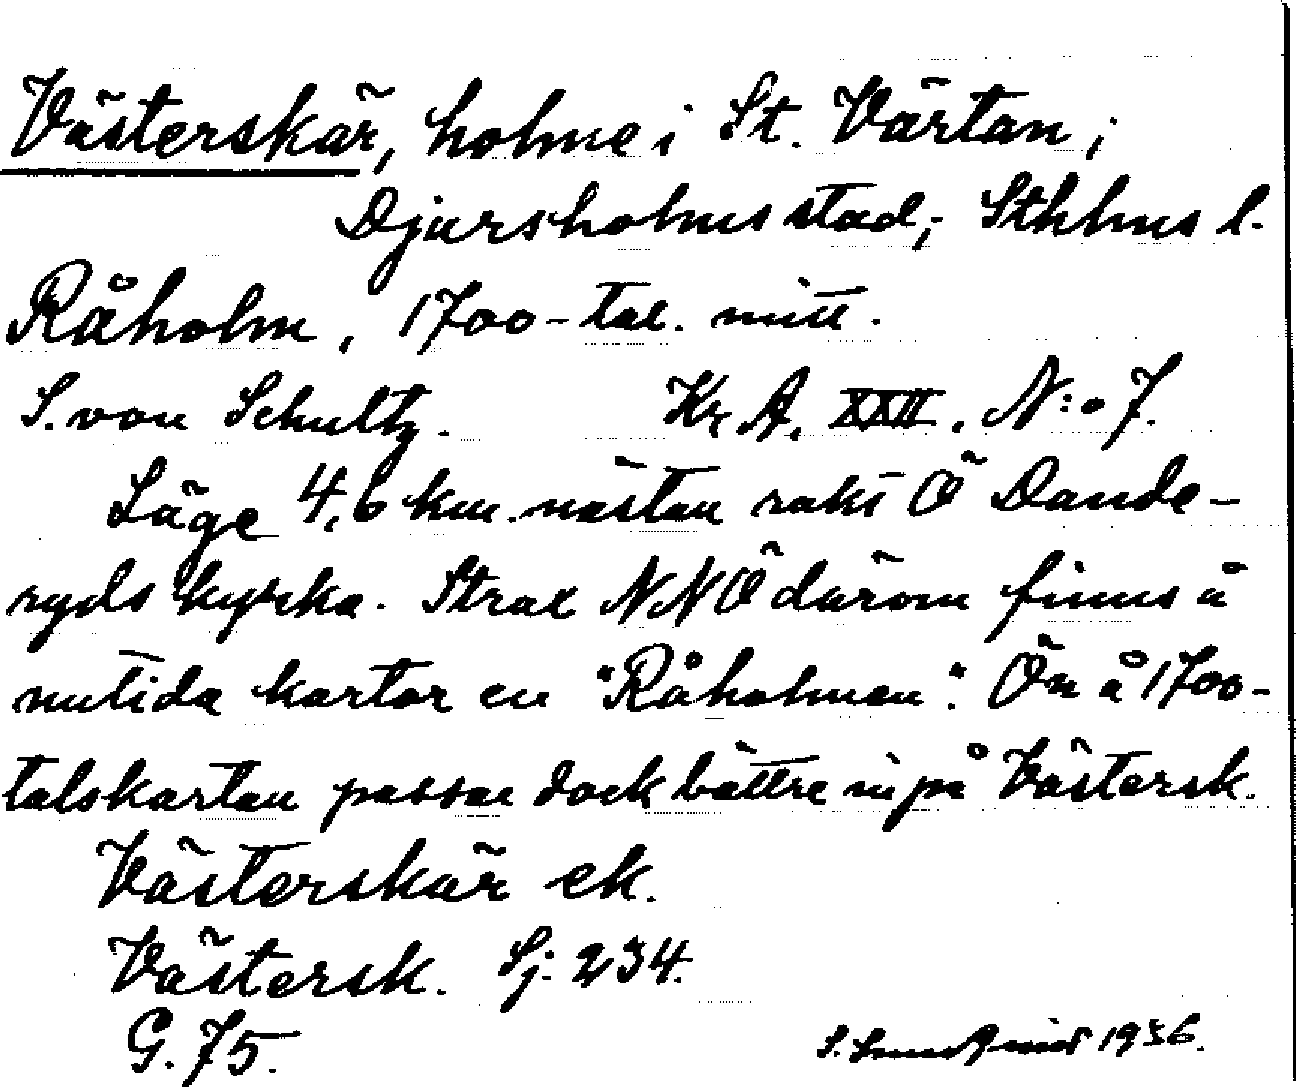 Västerskär, holme i St. Värtan,
Djursholms stad, Sthlms l.
Råholm, 1700-tal. mitt.
S. von Schultz. Kr. A. XXII. N:o 7.
Läge 4,6 km. nästan rakt Ö Dande-
ryds kyrka. Strax NNÖ därom finns å
nutida kartor en "Råholmen". Ön å 1700-
talskartan passar dock bättre in på Västersk.
Västerskär ek.
Västersk. Sj. 234.
G. 75.
S. 1936.